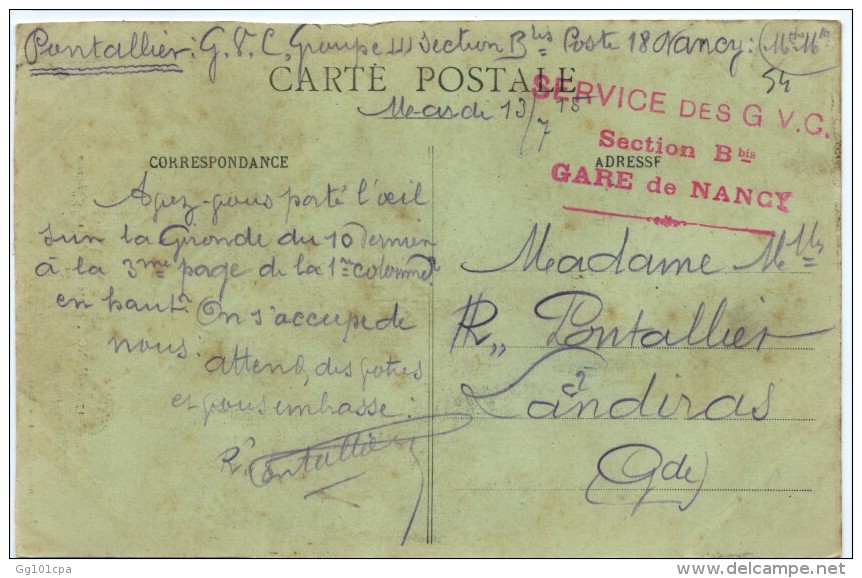 Pontallier : G.V.C, Groupe III Section Bbis Poste 18 Nancy : (Mthe Mlle)
54
CARTE POSTALE
Mardi 13/7 15
SERVICE DES G.V.C.
Section B bis
GARE de NANCY
CORRESPONDANCE
ADRESSE
Avez-vous porté l'œil
sur la Gironde du 10 Dernier
à la 3me page de la 1re colonne
en haut. On s'accupe de
nous.
attend, des votres
et vous embrasse :
R. Pontallier
Madame
R,, Pontallier
à Landiras
(Gde)
Gg101cpa
delcampe.net